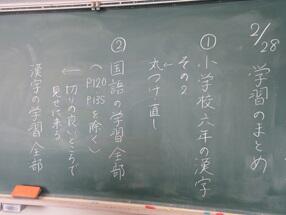 2/28 学習のまとめ
① 小学校六年の漢字
その2
← 丸つけ直し
② 国語の学習 全部
(P120 P135 を除く)
← 切りの良いところで
見せに来る
漢字の学習 全部